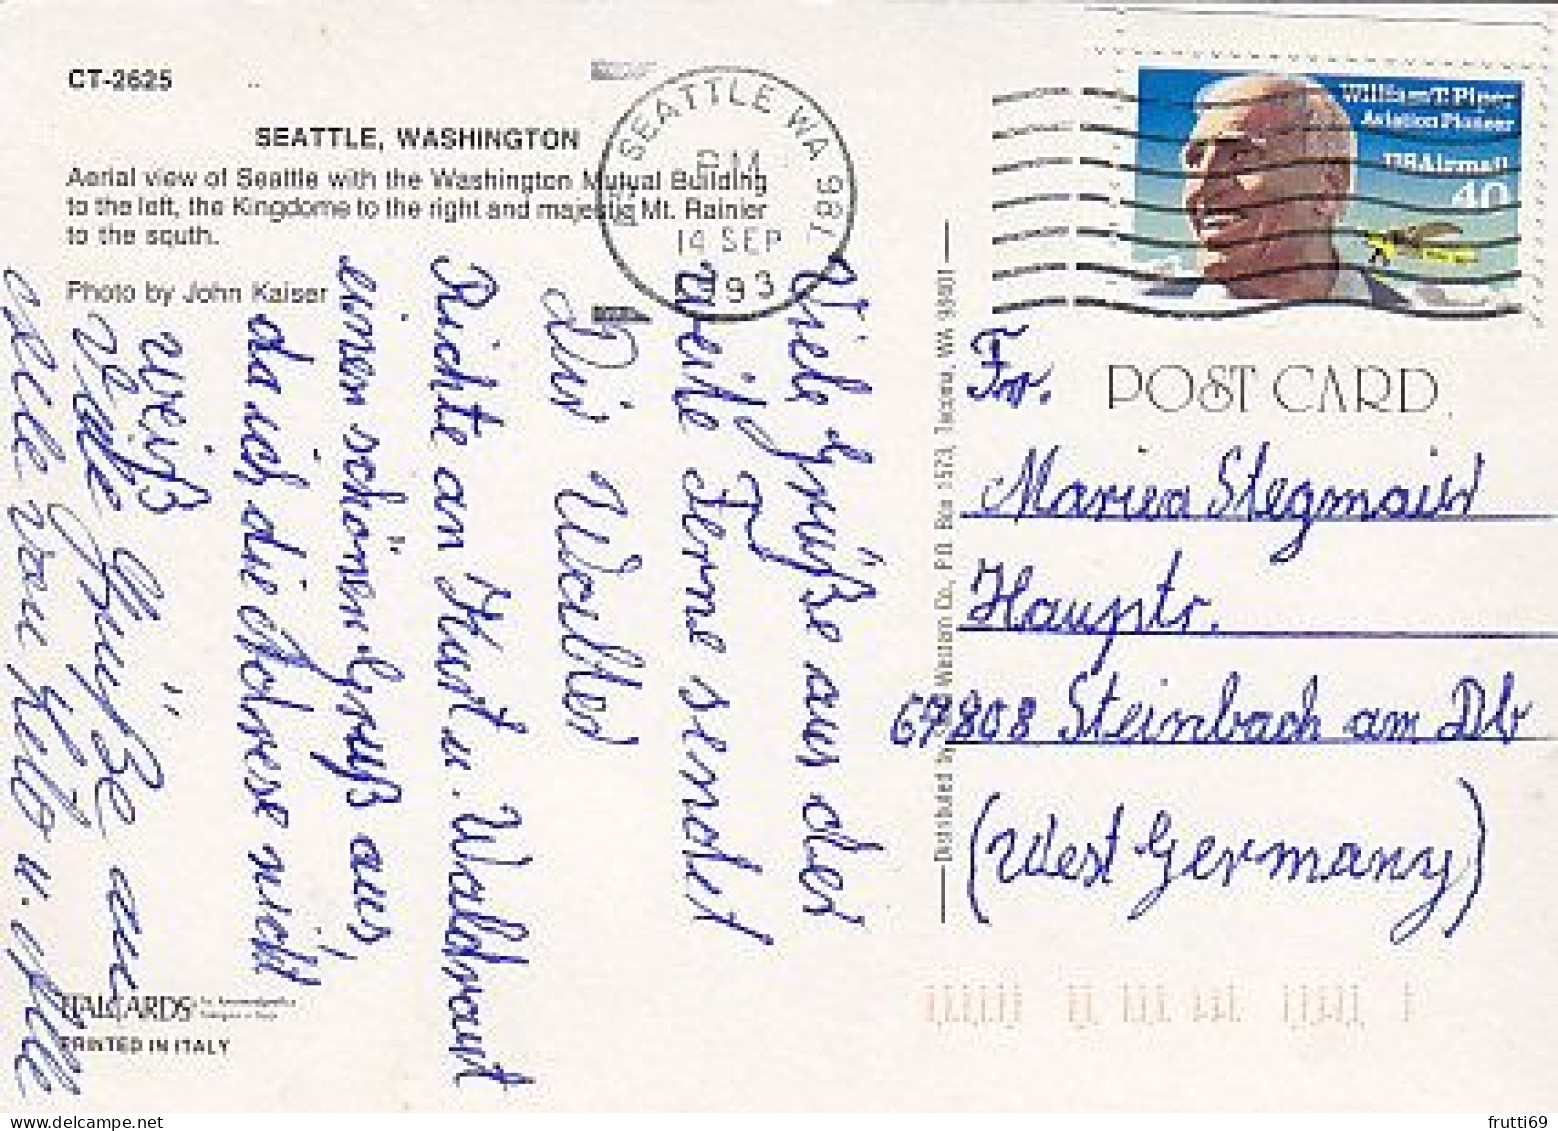 CT-2625
SEATTLE, WASHINGTON
Aerial view of Seattle with the Washington Mutual Building
to the left, the Kingdome to the right and majestic Mt. Rainier
to the south.
Photo by John Kaiser
SEATTLE WA 981
PM
14 SEP
1993
William T. Piper
Aviation Pioneer
USAirmail
40
POST CARD
Fr.
Maria Stegmaier
Hauptstr.
67808 Steinbach am Db
(West Germany)
Viele Grüße aus der
weite Ferne sendet
Dir Walter
Richte an Kurt u. Waltraut
einen schönen Gruß aus,
da ich die Adresse nicht
weiß
Viele Grüße an
Distributed by Western Co., P.O. Box 1573, Tacoma, WA 98401
ITALCARDS
PRINTED IN ITALY
frutti69